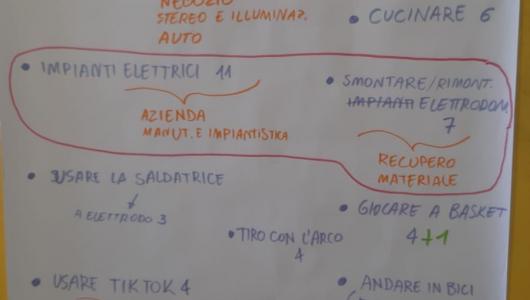 NEGOZIO
STEREO E ILLUMINAZ.
AUTO
• CUCINARE 6
• IMPIANTI ELETTRICI 11
AZIENDA
MANUT. E IMPIANTISTICA
• SMONTARE/RIMONT.
IMPIANTI ELETTRODOM.
7
RECUPERO
MATERIALE
• USARE LA SALDATRICE
A ELETTRODO 3
• TIRO CON L'ARCO
4
• GIOCARE A BASKET
4+1
• USARE TIKTOK 4
• ANDARE IN BICI